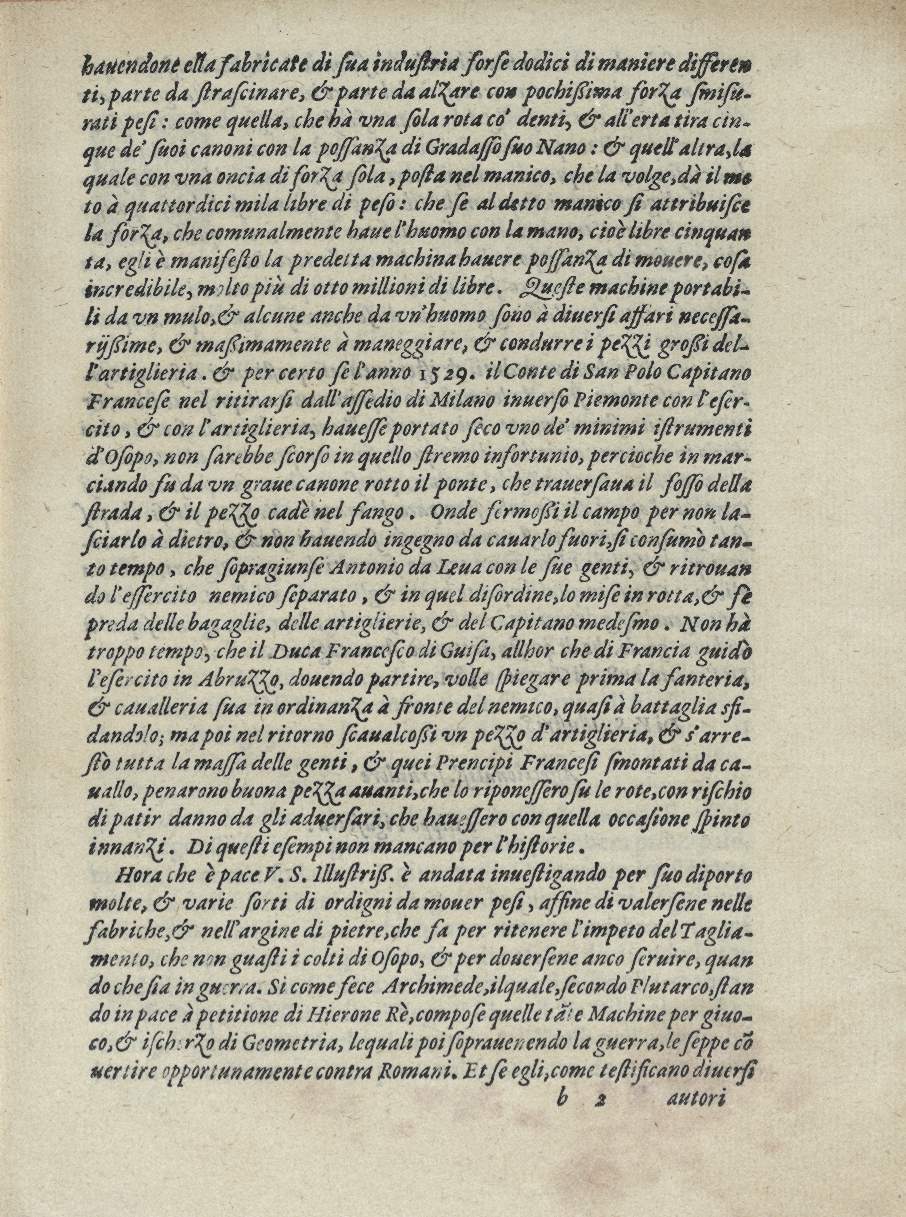 hauendone ella fabricate di ſua induſtria forſe dodici di maniere differen
ti, parte da ſtraſcinare, & parte da alzare con pochißima forza ſmiſu-
rati peſi: come quella, che hà vna ſola rota co' denti, & all'erta tira cin-
que de' ſuoi canoni con la poſſanza di Gradaſſo ſuo Nano: & quell'altra, la
quale con vna oncia di forza ſola, poſta nel manico, che la volge, dà il mo
to à quattordici mila libre di peſo: che ſe al detto manico ſi attribuiſce
la forza, che comunalmente haue l'huomo con la mano, cioè libre cinquan
ta, egli è manifeſto la predetta machina hauere poſſanza di mouere, coſa
incredibile, molto più di otto millioni di libre. Queſte machine portabi-
li da vn mulo, & alcune anche da vn'huomo ſono à diuerſi affari neceſſa-
rijßime, & maßimamente à maneggiare, & condurre i pezzi großi del-
l'artiglieria. & per certo ſe l'anno 1529. il Conte di San Polo Capitano
Franceſe nel ritirarſi dall'aſſedio di Milano inuerſo Piemonte con l'eſer-
cito, & con l'artiglieria, haueſſe portato ſeco vno de' minimi iſtrumenti
d'Oſopo, non ſarebbe ſcorſo in quello ſtremo infortunio, percioche in mar-
ciando fu da vn graue canone rotto il ponte, che trauerſaua il foſſo della
ſtrada, & il pezzo cadè nel fango. Onde fermoßi il campo per non la-
ſciarlo à dietro, & non hauendo ingegno da cauarlo fuori, ſi conſumò tan-
to tempo, che ſopragiunſe Antonio da Leua con le ſue genti, & ritrouan
do l'eſſercito nemico ſeparato, & in quel diſordine, lo miſe in rotta, & fè
preda delle bagaglie, delle artiglierie, & del Capitano medeſmo. Non hà
troppo tempo, che il Duca Franceſco di Guiſa, allhor che di Francia guidò
l'eſercito in Abruzzo, douendo partire, volle ſpiegare prima la fanteria,
& caualleria ſua in ordinanza à fronte del nemico, quaſi à battaglia sfi-
dandolo; ma poi nel ritorno ſcaualcoßi vn pezzo d'artiglieria, & s'arre-
ſtò tutta la maſſa delle genti, & quei Prencipi Franceſi ſmontati da ca-
uallo, penarono buona pezza auanti, che lo riponeſſero ſu le rote, con riſchio
di patir danno da gli aduerſari, che haueſſero con quella occaſione ſpinto
innanzi. Di queſti eſempi non mancano per l'hiſtorie.
Hora che è pace V. S. Illuſtriß. è andata inueſtigando per ſuo diporto
molte, & varie ſorti di ordigni da mouer peſi, affine di valerſene nelle
fabriche, & nell'argine di pietre, che fa per ritenere l'impeto del Taglia-
mento, che non guaſti i colti di Oſopo, & per douerſene anco ſeruire, quan
do che ſia in guerra. Si come fece Archimede, ilquale, ſecondo Plutarco, ſtan
do in pace à petitione di Hierone Rè, compoſe quelle tāte Machine per giuo-
co, & iſcherzo di Geometria, lequali poi ſoprauenendo la guerra, le ſeppe cō
uertire opportunamente contra Romani. Et ſe egli, come teſtificano diuerſi
b 2 autori